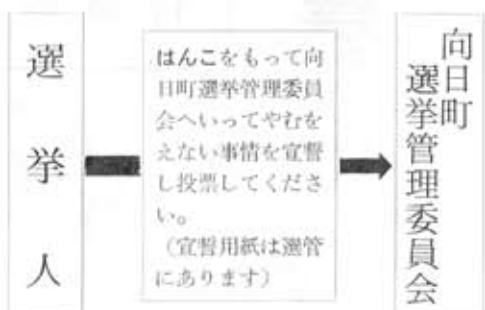 選挙人
はんこをもって向
日町選挙管理委員
会へいってやむを
えない事情を宣誓
し投票してくださ
い。
(宣誓用紙は選管
にあります)
向日町
選挙管理委員会